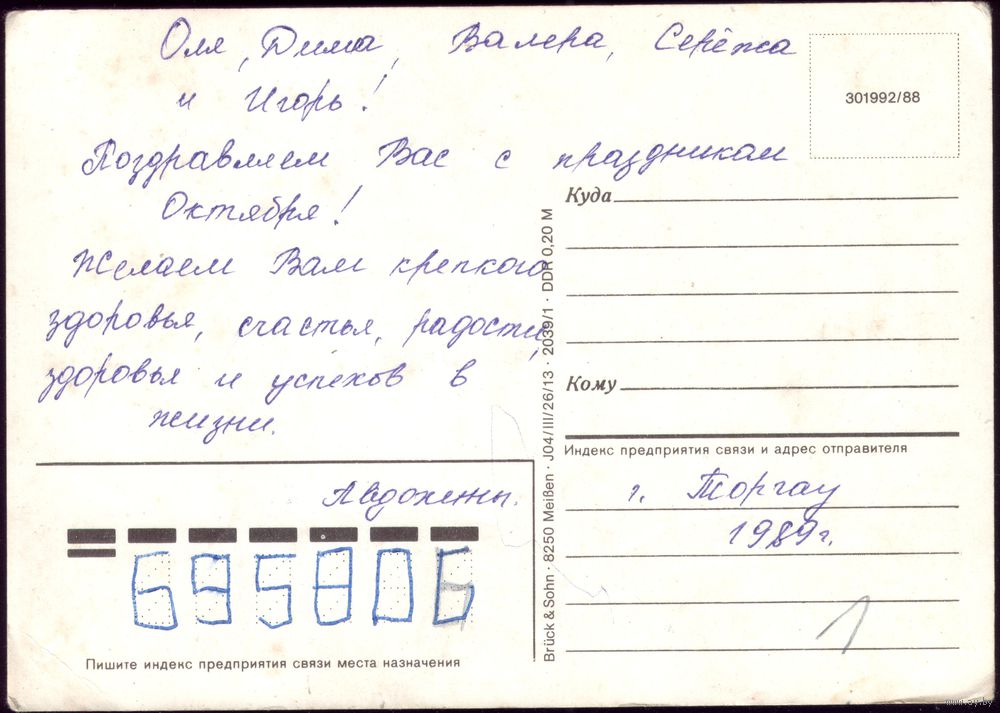 Оля, Дима, Валера, Серёжа
и Игорь!
Поздравляем Вас с праздникам
Октября!
Желаем Вам крепкого
здоровья, счастья, радости,
здоровья и успехов в
жизни.
301992/88
Куда
Кому
Индекс предприятия связи и адрес отправителя
г. Торгау
1989г.
1
Brück & Sohn · 8250 Meißen · J04/III/26/13 · 2039/1 · DDR 0,20 M
695806
Пишите индекс предприятия связи места назначения